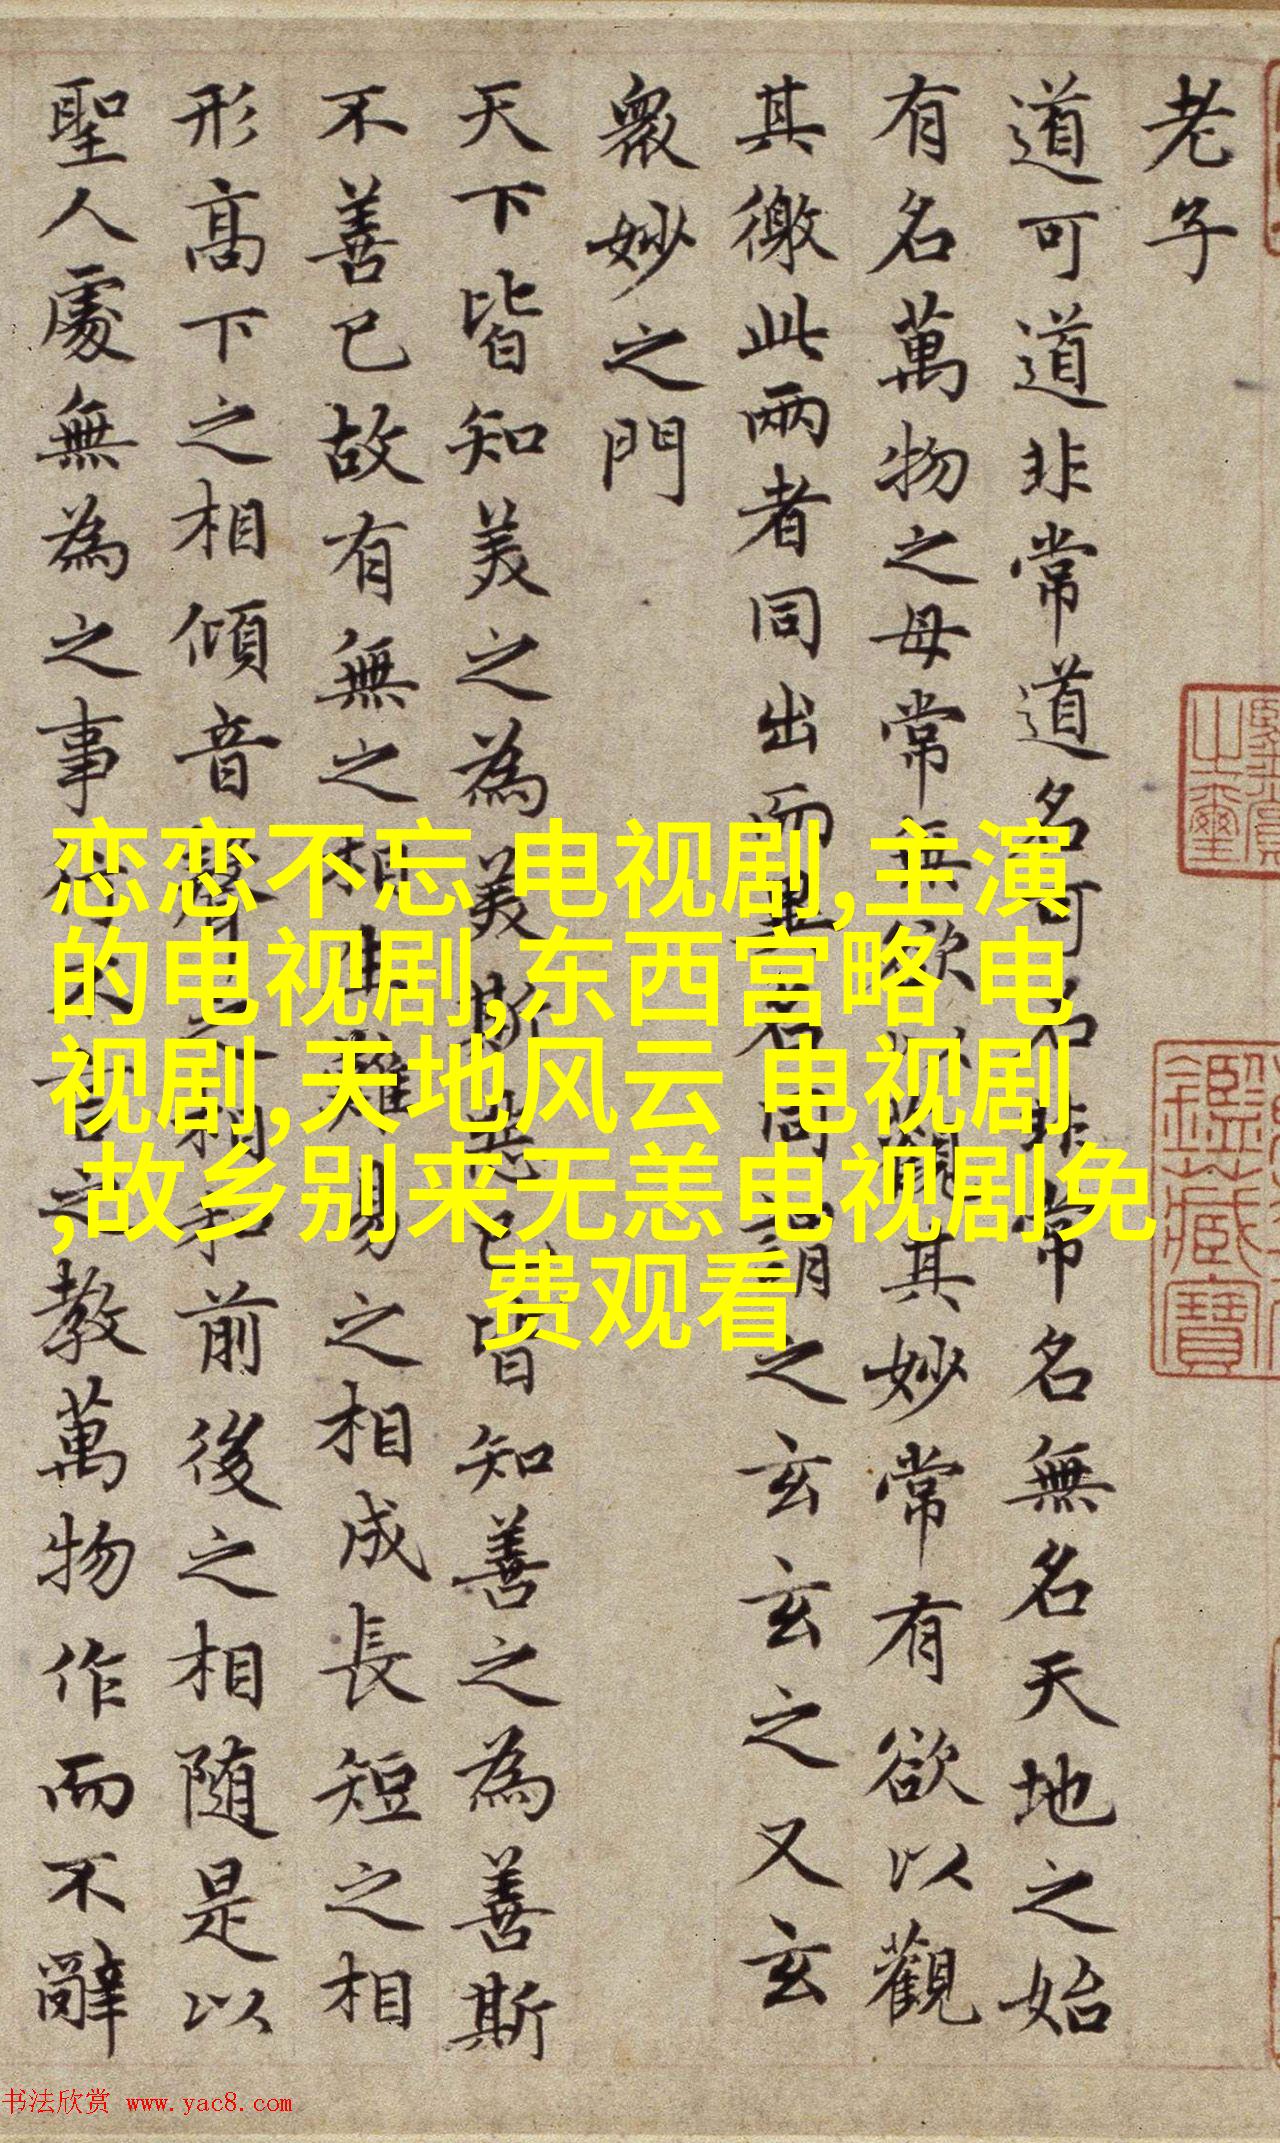 老子
道可道非常道名可名非常名無名天地之始
有名萬物之母常無欲以觀其妙常有欲以觀
其徼此兩者同出而異名同謂之玄玄之又玄
衆妙之門
天下皆知美之為美斯惡已皆知善之為善斯
不善已故有無之相生難易之相成長短之相
形高下之相傾音聲之相和前後之相随是以
聖人處無為之事行不言之教萬物作而不辭
恋恋不忘 电视剧,主演
的电视剧,东西宫略 电
视剧,天地风云 电视剧
,故乡别来无恙电视剧免
费观看
鑑藏寶
书法欣赏 www.yac8.com